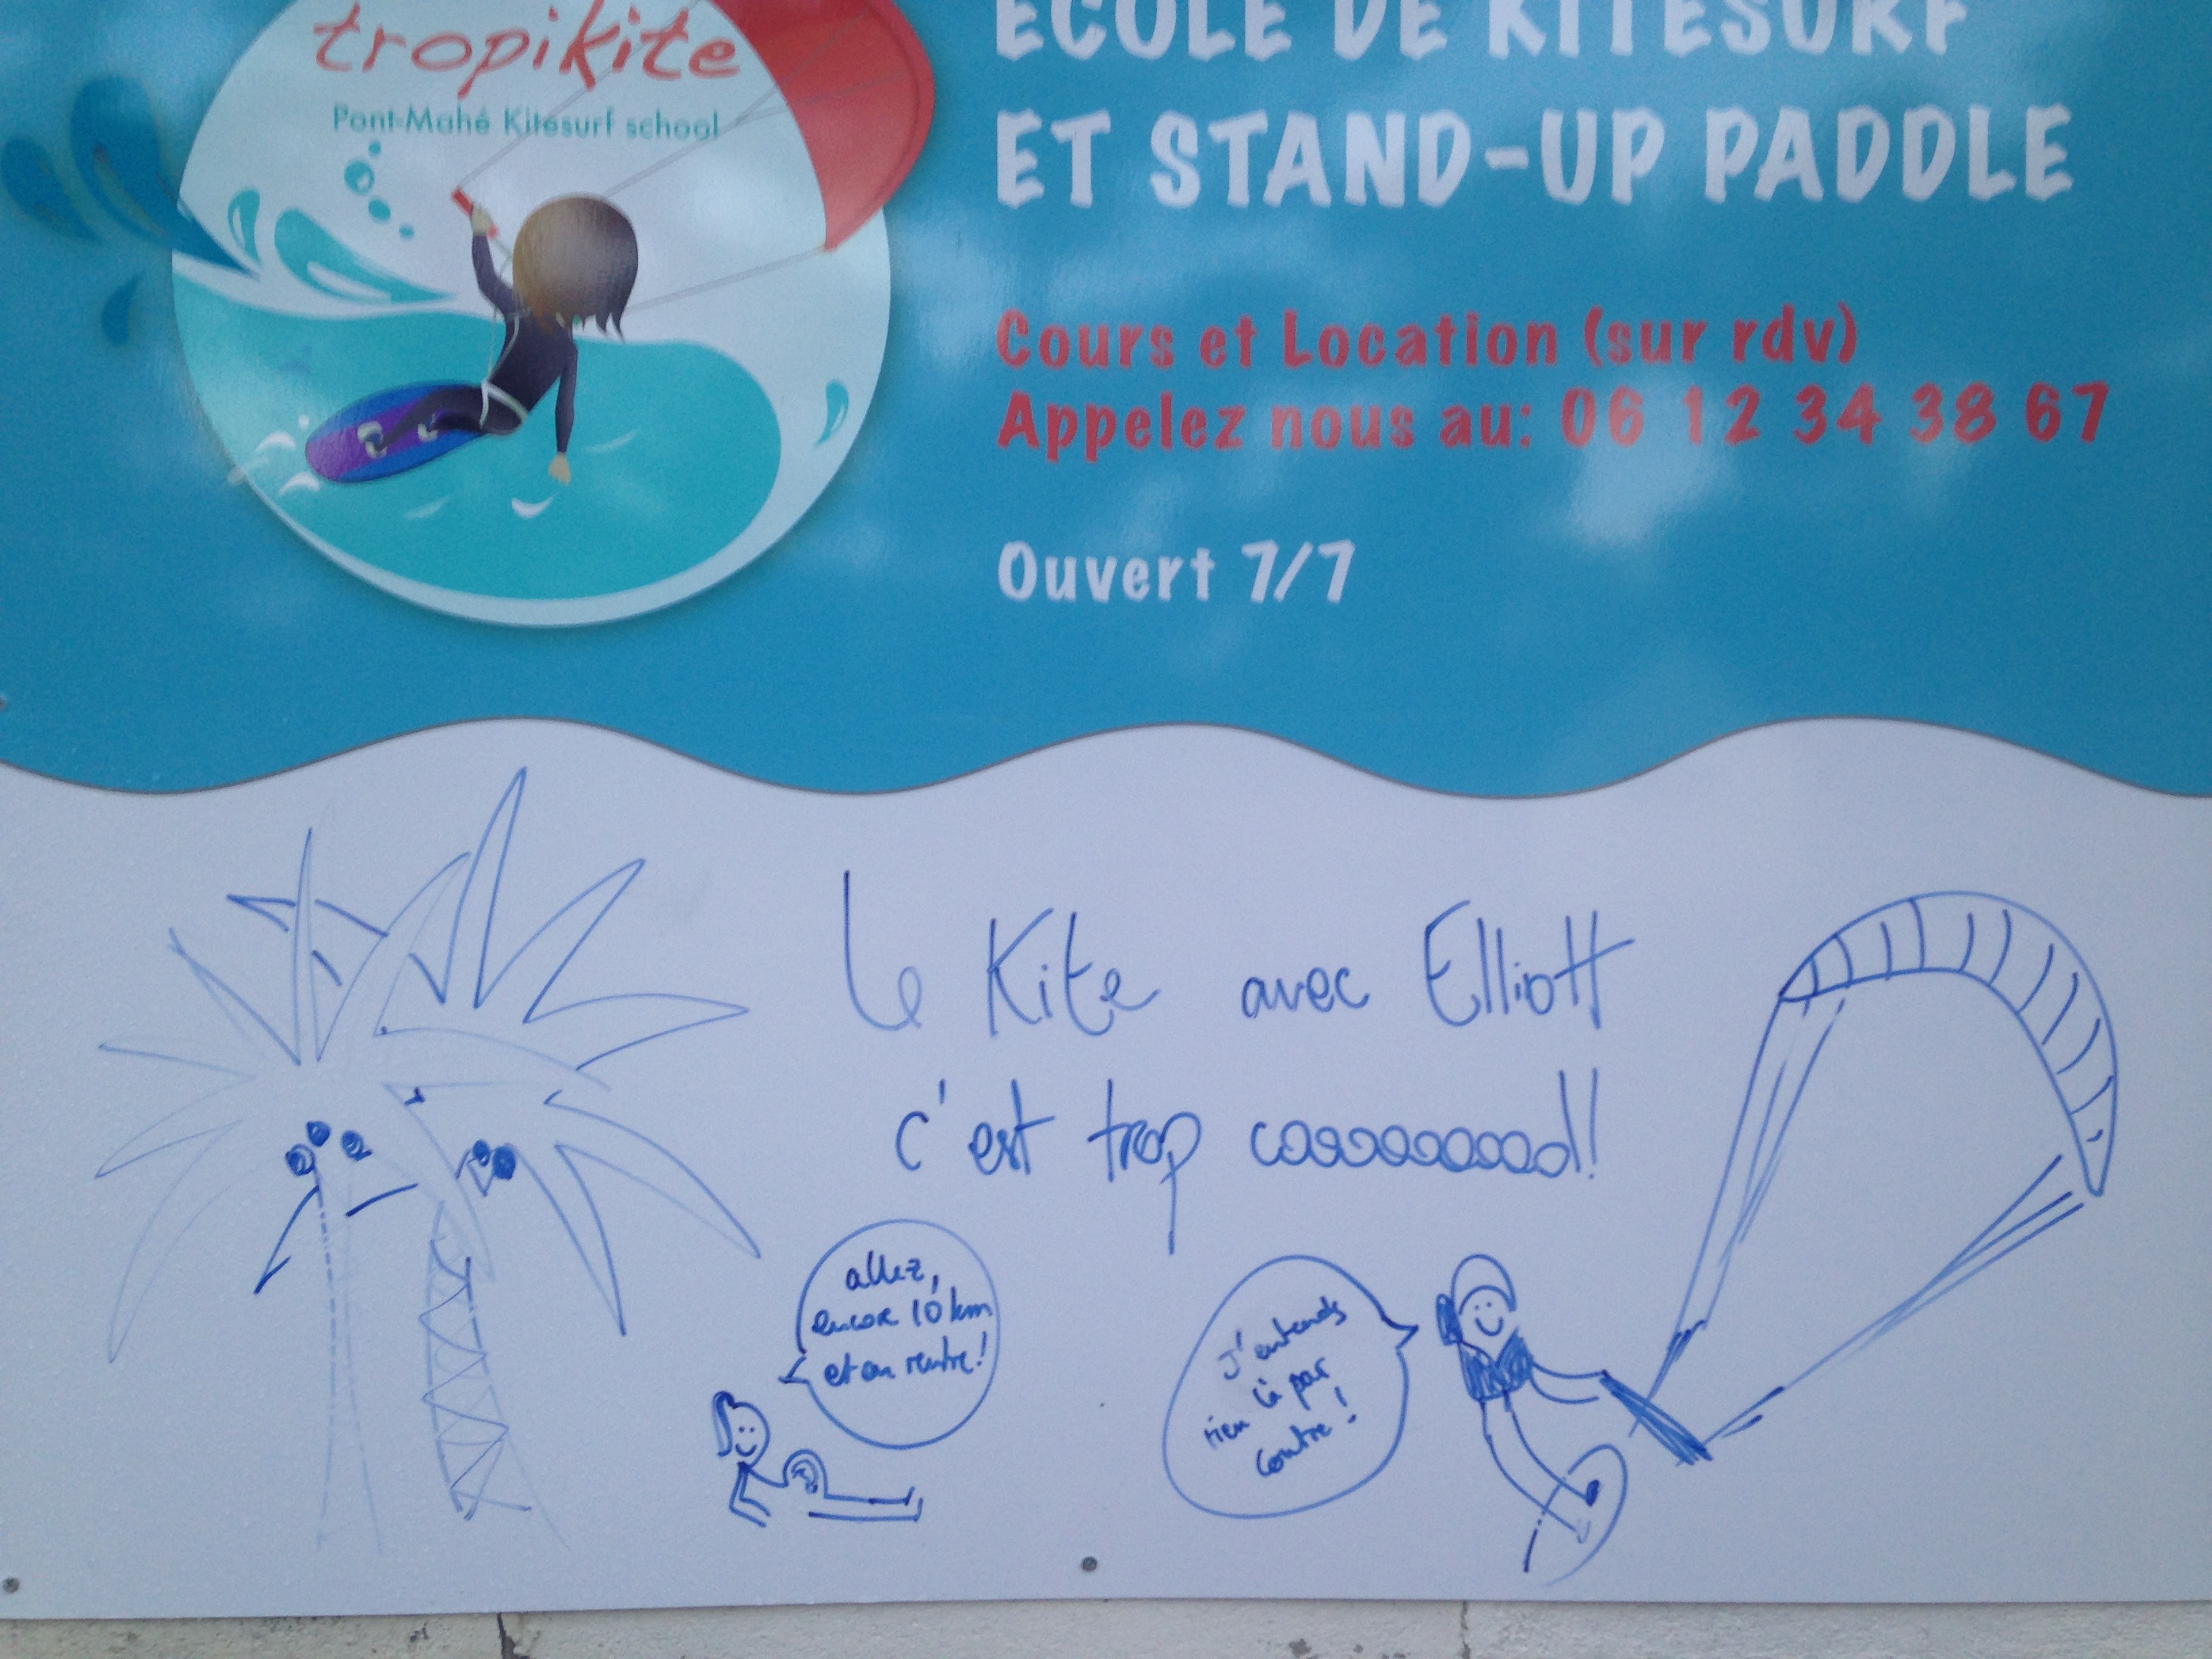 tropikite
Pont-Mahé Kitesurf school
ECOLE DE KITESURF
ET STAND-UP PADDLE
Cours et Location (sur rdv)
Appelez nous au: 06 12 34 38 67
Ouvert 7/7
Le Kite avec Elliott
c'est trop caooooooood!
allez,
encore 10 km
et on rentre!
J'entends
rien là par
contre!